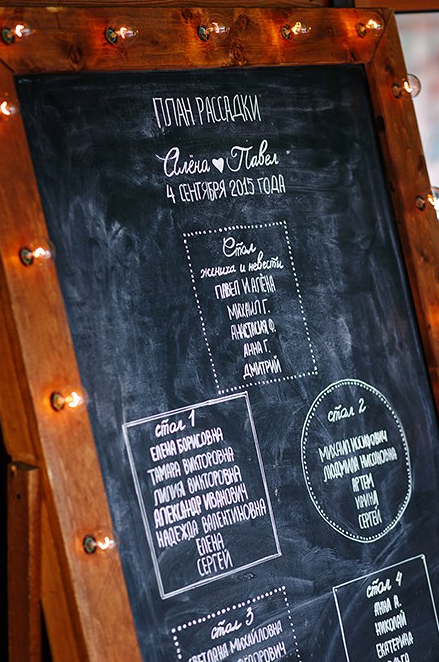 ПЛАН РАССАДКИ
Алёна Павел
4 СЕНТЯБРЯ 2015 ГОДА
Стол
жениха и невесты
ПАВЕЛ И АЛЁНА
МИХАИЛ Г.
АНАСТАСИЯ Ф.
АННА Г.
ДМИТРИЙ
стол 1
ЕЛЕНА БОРИСОВНА
ТАМАРА ВИКТОРОВНА
ЛИЛИЯ ВИКТОРОВНА
АЛЕКСАНДР ИВАНОВИЧ
НАДЕЖДА ВАЛЕНТИНОВНА
ЕЛЕНА
СЕРГЕЙ
стол 2
МИХАИЛ ИОСИФОВИЧ
ЛЮДМИЛА
АРТЕМ
ИРИНА
СЕРГЕЙ
стол 3
СВЕТЛАНА МИХАЙЛОВНА
стол 4
АННА А.
НИКОЛАЙ
ЕКАТЕРИНА